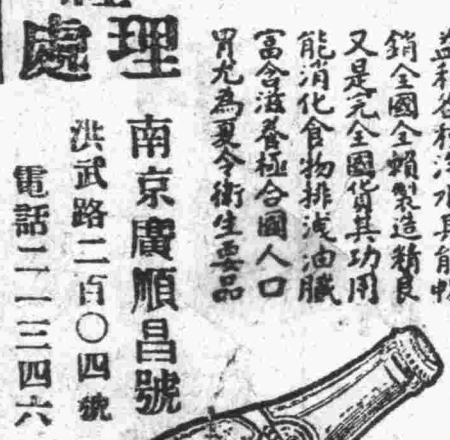 益利各種汽水具能暢
銷全國全賴製造精良
又是完全國貨其功用
能消化食物排洩油膩
富含滋養極合國人口
胃尤為夏令衛生要品
理處
南京廣順昌號
洪武路二百〇四號
電話二二三四六